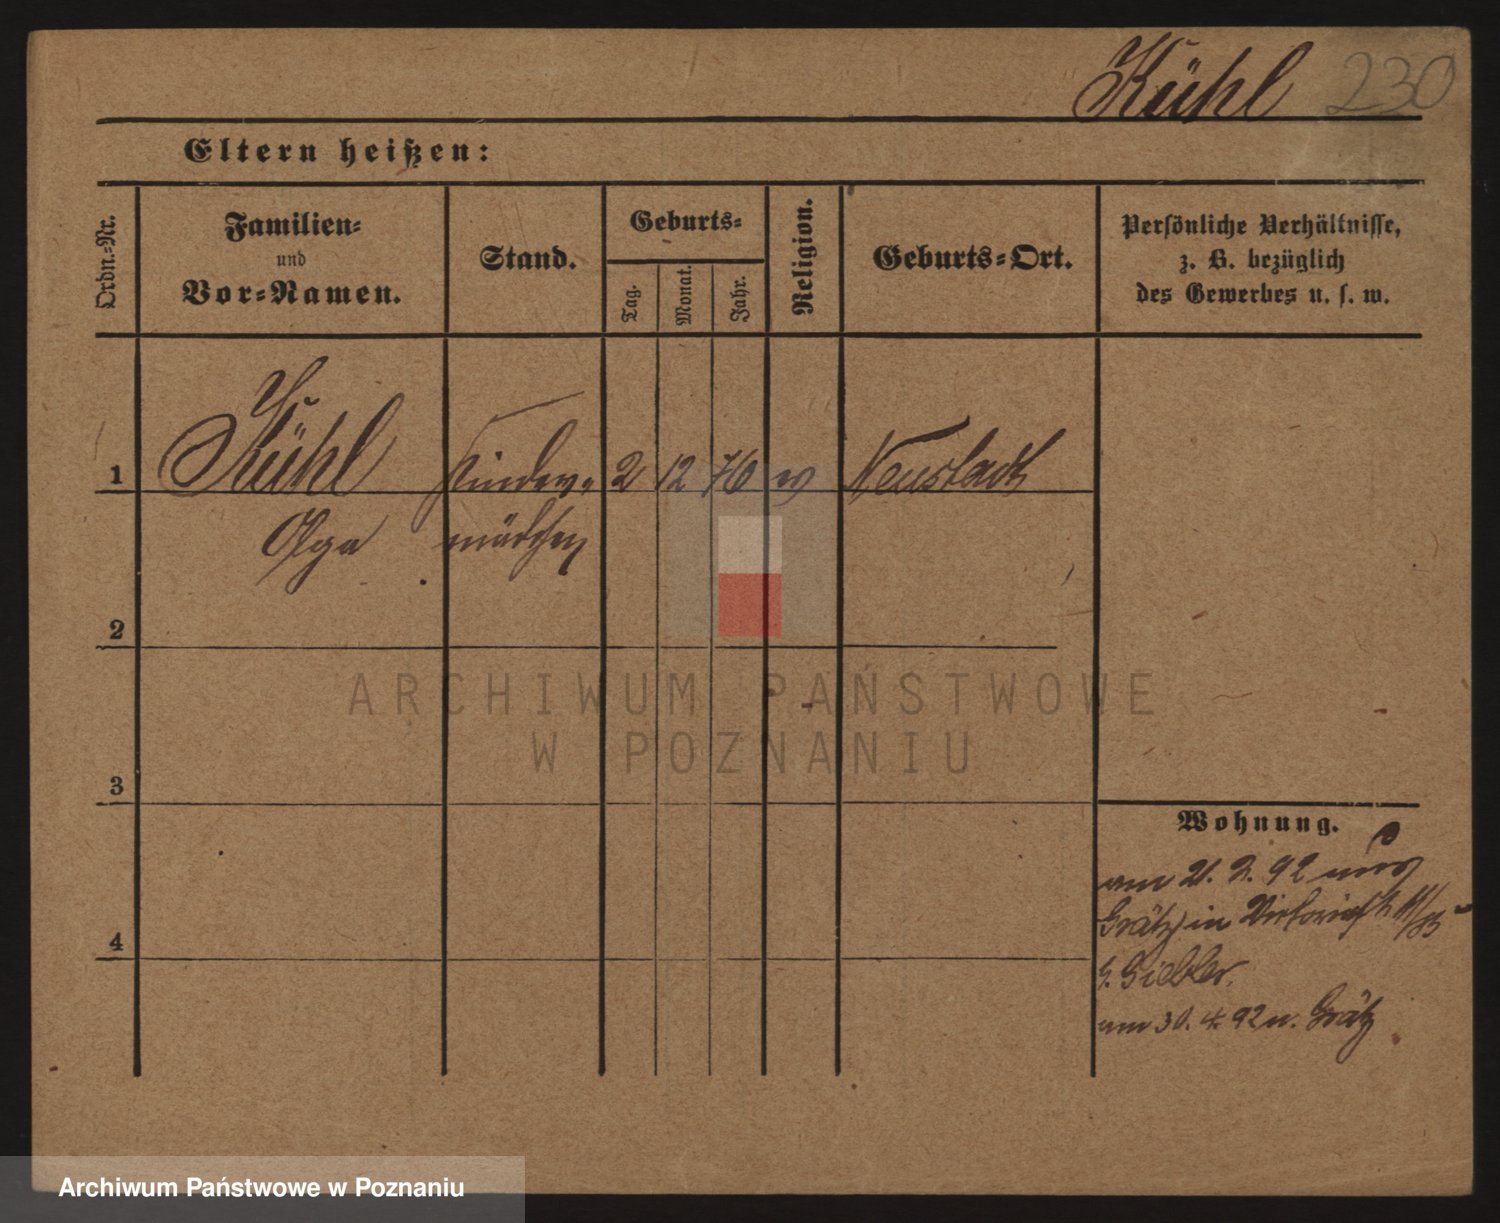 Kühl 230
Eltern heißen:
Ordn.=Nr.
Familien=
und
Vor=Namen.
Stand.
Geburts=
Tag.
Monat.
Jahr.
Religion.
Geburts=Ort.
Persönliche Verhältnisse,
z. B. bezüglich
des Gewerbes u. s. w.
1 Kühl Kinder= 2 12 76 Neustadt
Olga mädchen
2
3
4
Wohnung.
am 21. 2. 92 aus
Grätz in Victoriastr
G. Giebler.
am 30. 4. 92 n. Grätz
ARCHIWUM PAŃSTWOWE
W POZNANIU
Archiwum Państwowe w Poznaniu